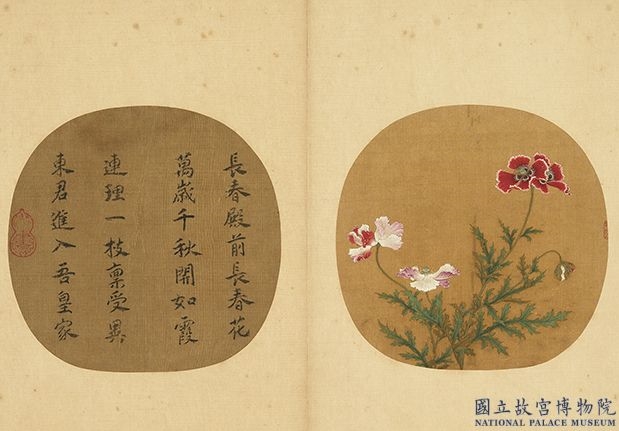 長春殿前長春花
萬歲千秋開如霞
連理一枝稟受異
東君進入吾皇家
國立故宮博物院
NATIONAL PALACE MUSEUM